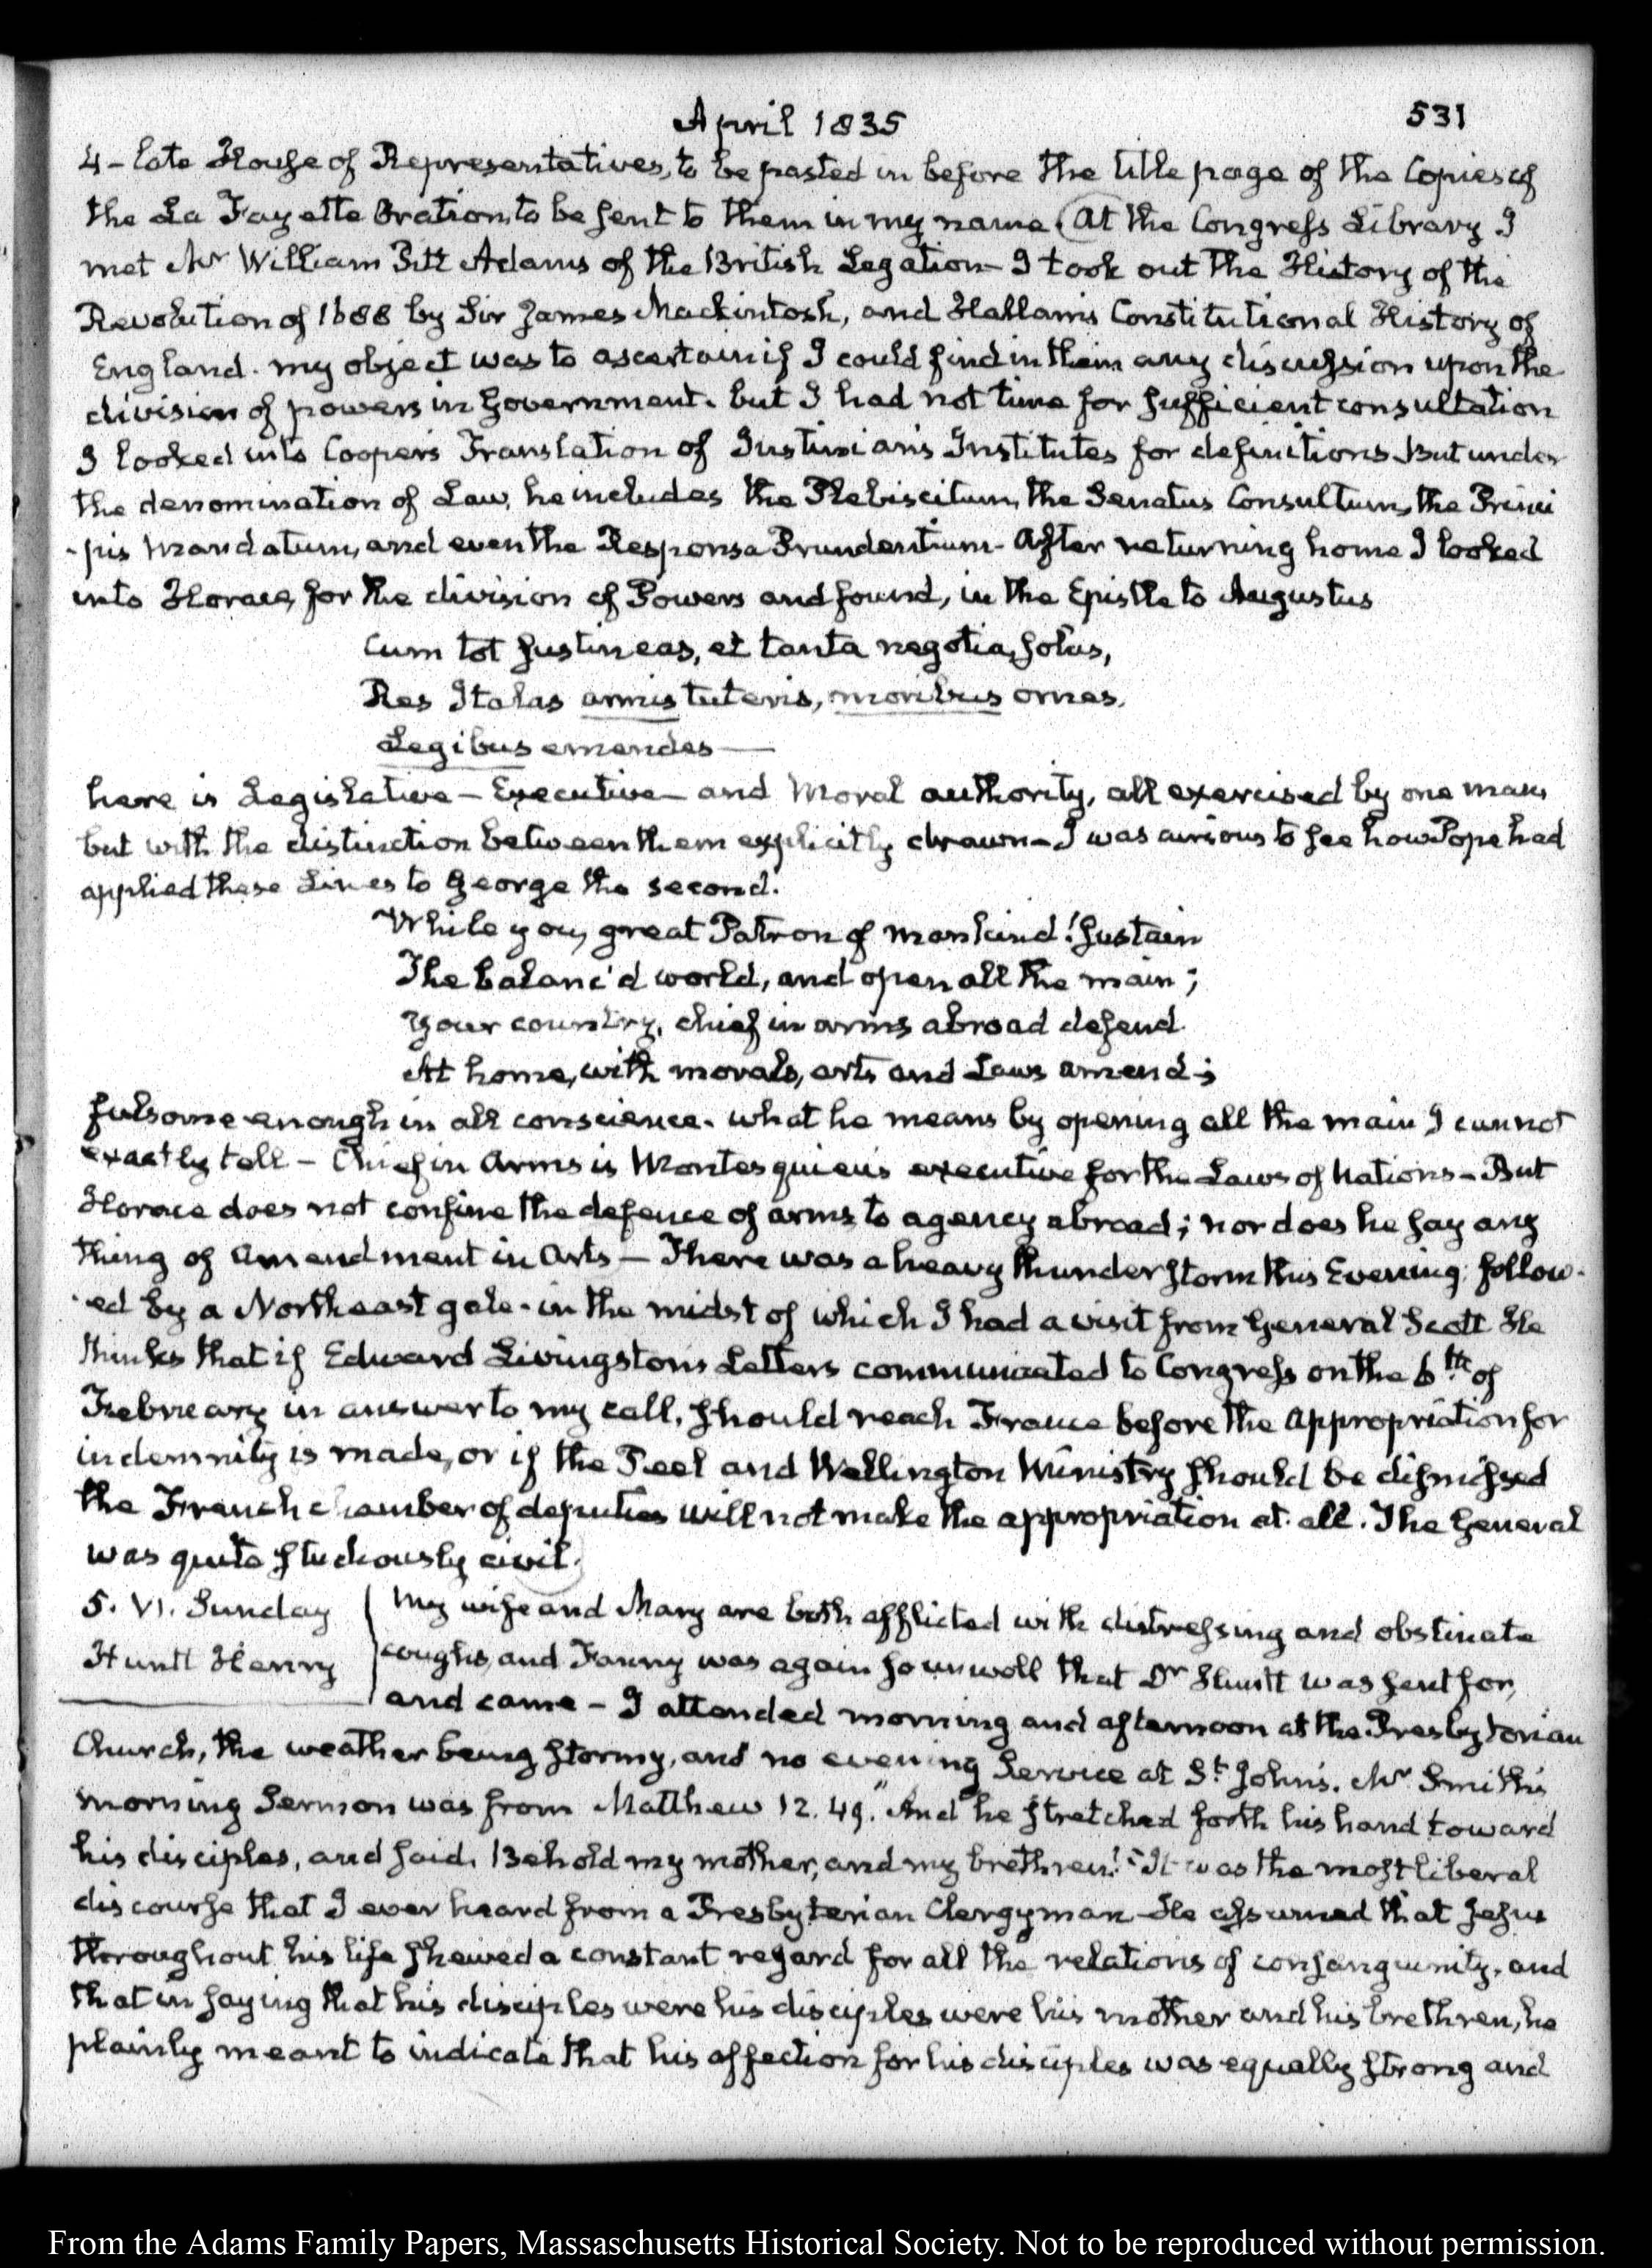 April 1835
531
4 – late House of Representatives, to be pasted in before the title page of the Copies of
the La Fayette Oration to be sent to them in my name. At the Congress Library I
met Mr William Pitt Adams of the British Legation – I took out the History of the
Revolution of 1688 by Sir James Mackintosh, and Hallam's Constitutional History of
England. my object was to ascertain if I could find in them any discussion upon the
division of powers in Government. but I had not time for sufficient consultation
I looked into Cooper's Translation of Justinian's Institutes for definitions But under
the denomination of Law, he includes the Plebiscitum, the Senatus Consultum, the Princi
-pis Mandatum, and even the Responsa Prundentium – After returning home I looked
into Horace, for the division of Powers and found, in the Epistle to Augustus
Cum tot sustineas, et tanta negotia, solus,
Res Italas armis tuteris, moribus ornes,
Legibus emendes —
here is Legislative – Executive – and Moral authority, all exercised by one man
but with the distinction between them explicitly drawn – I was curious to see how Pope had
applied these Lines to George the second.
While you, great Patron of mankind! sustain
The balanc'd world, and open all the main;
Your country, chief in arms abroad defend.
At home, with morals, arts and Laws amend;
fulsome enough in all conscience. what he means by opening all the main I cannot
exactly tell – Chief in Arms is Montesquieu's executive for the Laws of Nations – But
Horace does not confine the defence of arms to agency abroad; nor does he say any
thing of Amendment in Arts – There was a heavy thunder storm this Evening; follow-
-ed by a Northeast gale. in the midst of which I had a visit from General Scott He
thinks that if Edward Livingston's Letters communicated to Congress on the 6th of
February in answer to my call, should reach France before the Appropriation for
indemnity is made, or if the Peel and Wellington Ministry should be dismissed
the French chamber of deputies will not make the appropriation at all. The General
was quite studiously civil.
5. VI. Sunday
Huntt Henry
My wife and Mary are both afflicted with distressing and obstinate
coughs, and Fanny was again so unwell that Dr Huntt was sent for,
and came – I attended morning and afternoon at the Presbyterian
Church, the weather being stormy, and no evening Service at St. John's. Mr Smith's
morning Sermon was from Matthew 12. 49. "And he stretched forth his hand toward
his disciples, and said, Behold my mother, and my brethren!" It was the most liberal
discourse that I ever heard from a Presbyterian Clergyman – He assumed that Jesus
thoroughout his life shewed a constant regard for all the relations of consanguinity, and
that in saying that his disciples were his disciples were his mother and his brethren, he
plainly meant to indicate that his affection for his disciples was equally strong and
From the Adams Family Papers, Massachusetts Historical Society. Not to be reproduced without permission.